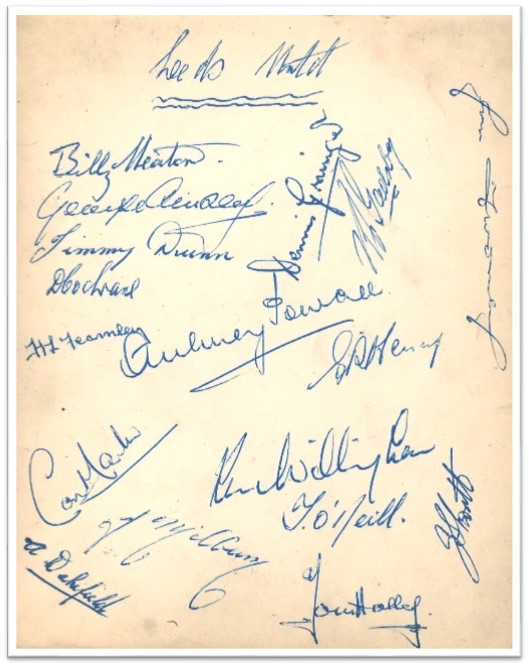 Leeds Utd
Billy Heaton.
George Ainsley.
Jimmy Dunn
D Cochrane
Dennis Grainger
H L Fearnley
Aubrey Powell.
G R Henry
Con Martin
Ken Willingham
J. O'Neill.
J Milburn
A Wakefield
Tom Holley.